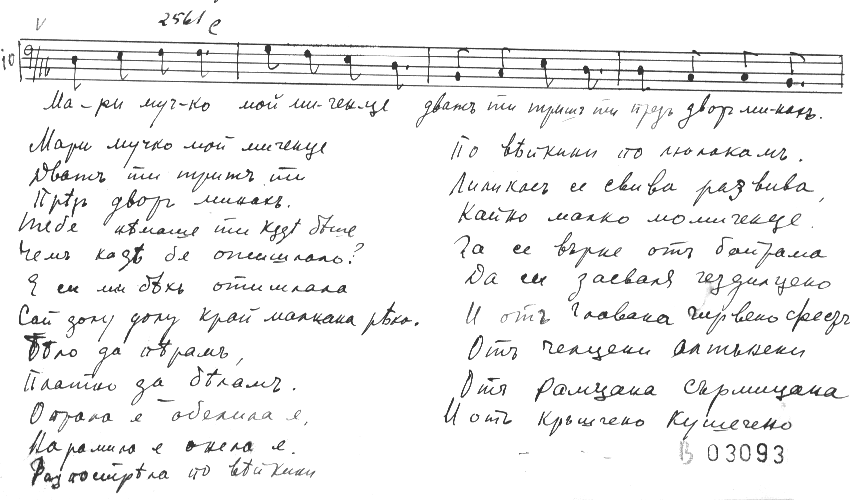 2561
10
Ма-ри муч-ко мой ми-ченце дважъ ти тришъ ти презъ дворъ ми-нахъ.
Мари мучко мой миченце
Дважъ ти тришъ ти
Прѣзъ дворъ минахъ.
Тебе нѣмаше ти кѫдѣ бѣше
Чемъ кадѣ бе отишлало?
Я си ми бѣхъ отишлала
Сай долу долу край малкана рѣка.
Бѣло да пѣрамъ,
Платно да бѣламъ.
Опрала е обелила е,
Нарамила е онела е.
Разпострѣла по вѣйкини
По вѣйкини по люлакамъ.
Люликасъ се свива развива,
Кайно малко момиченце.
Га се върне отъ байрама
Да си засваля гездилцено
И отъ главана чирвено фесецъ
Отъ челцени алтънени
Отъ рамцана сърмицана
И отъ кръшчено кушечено
В 03093